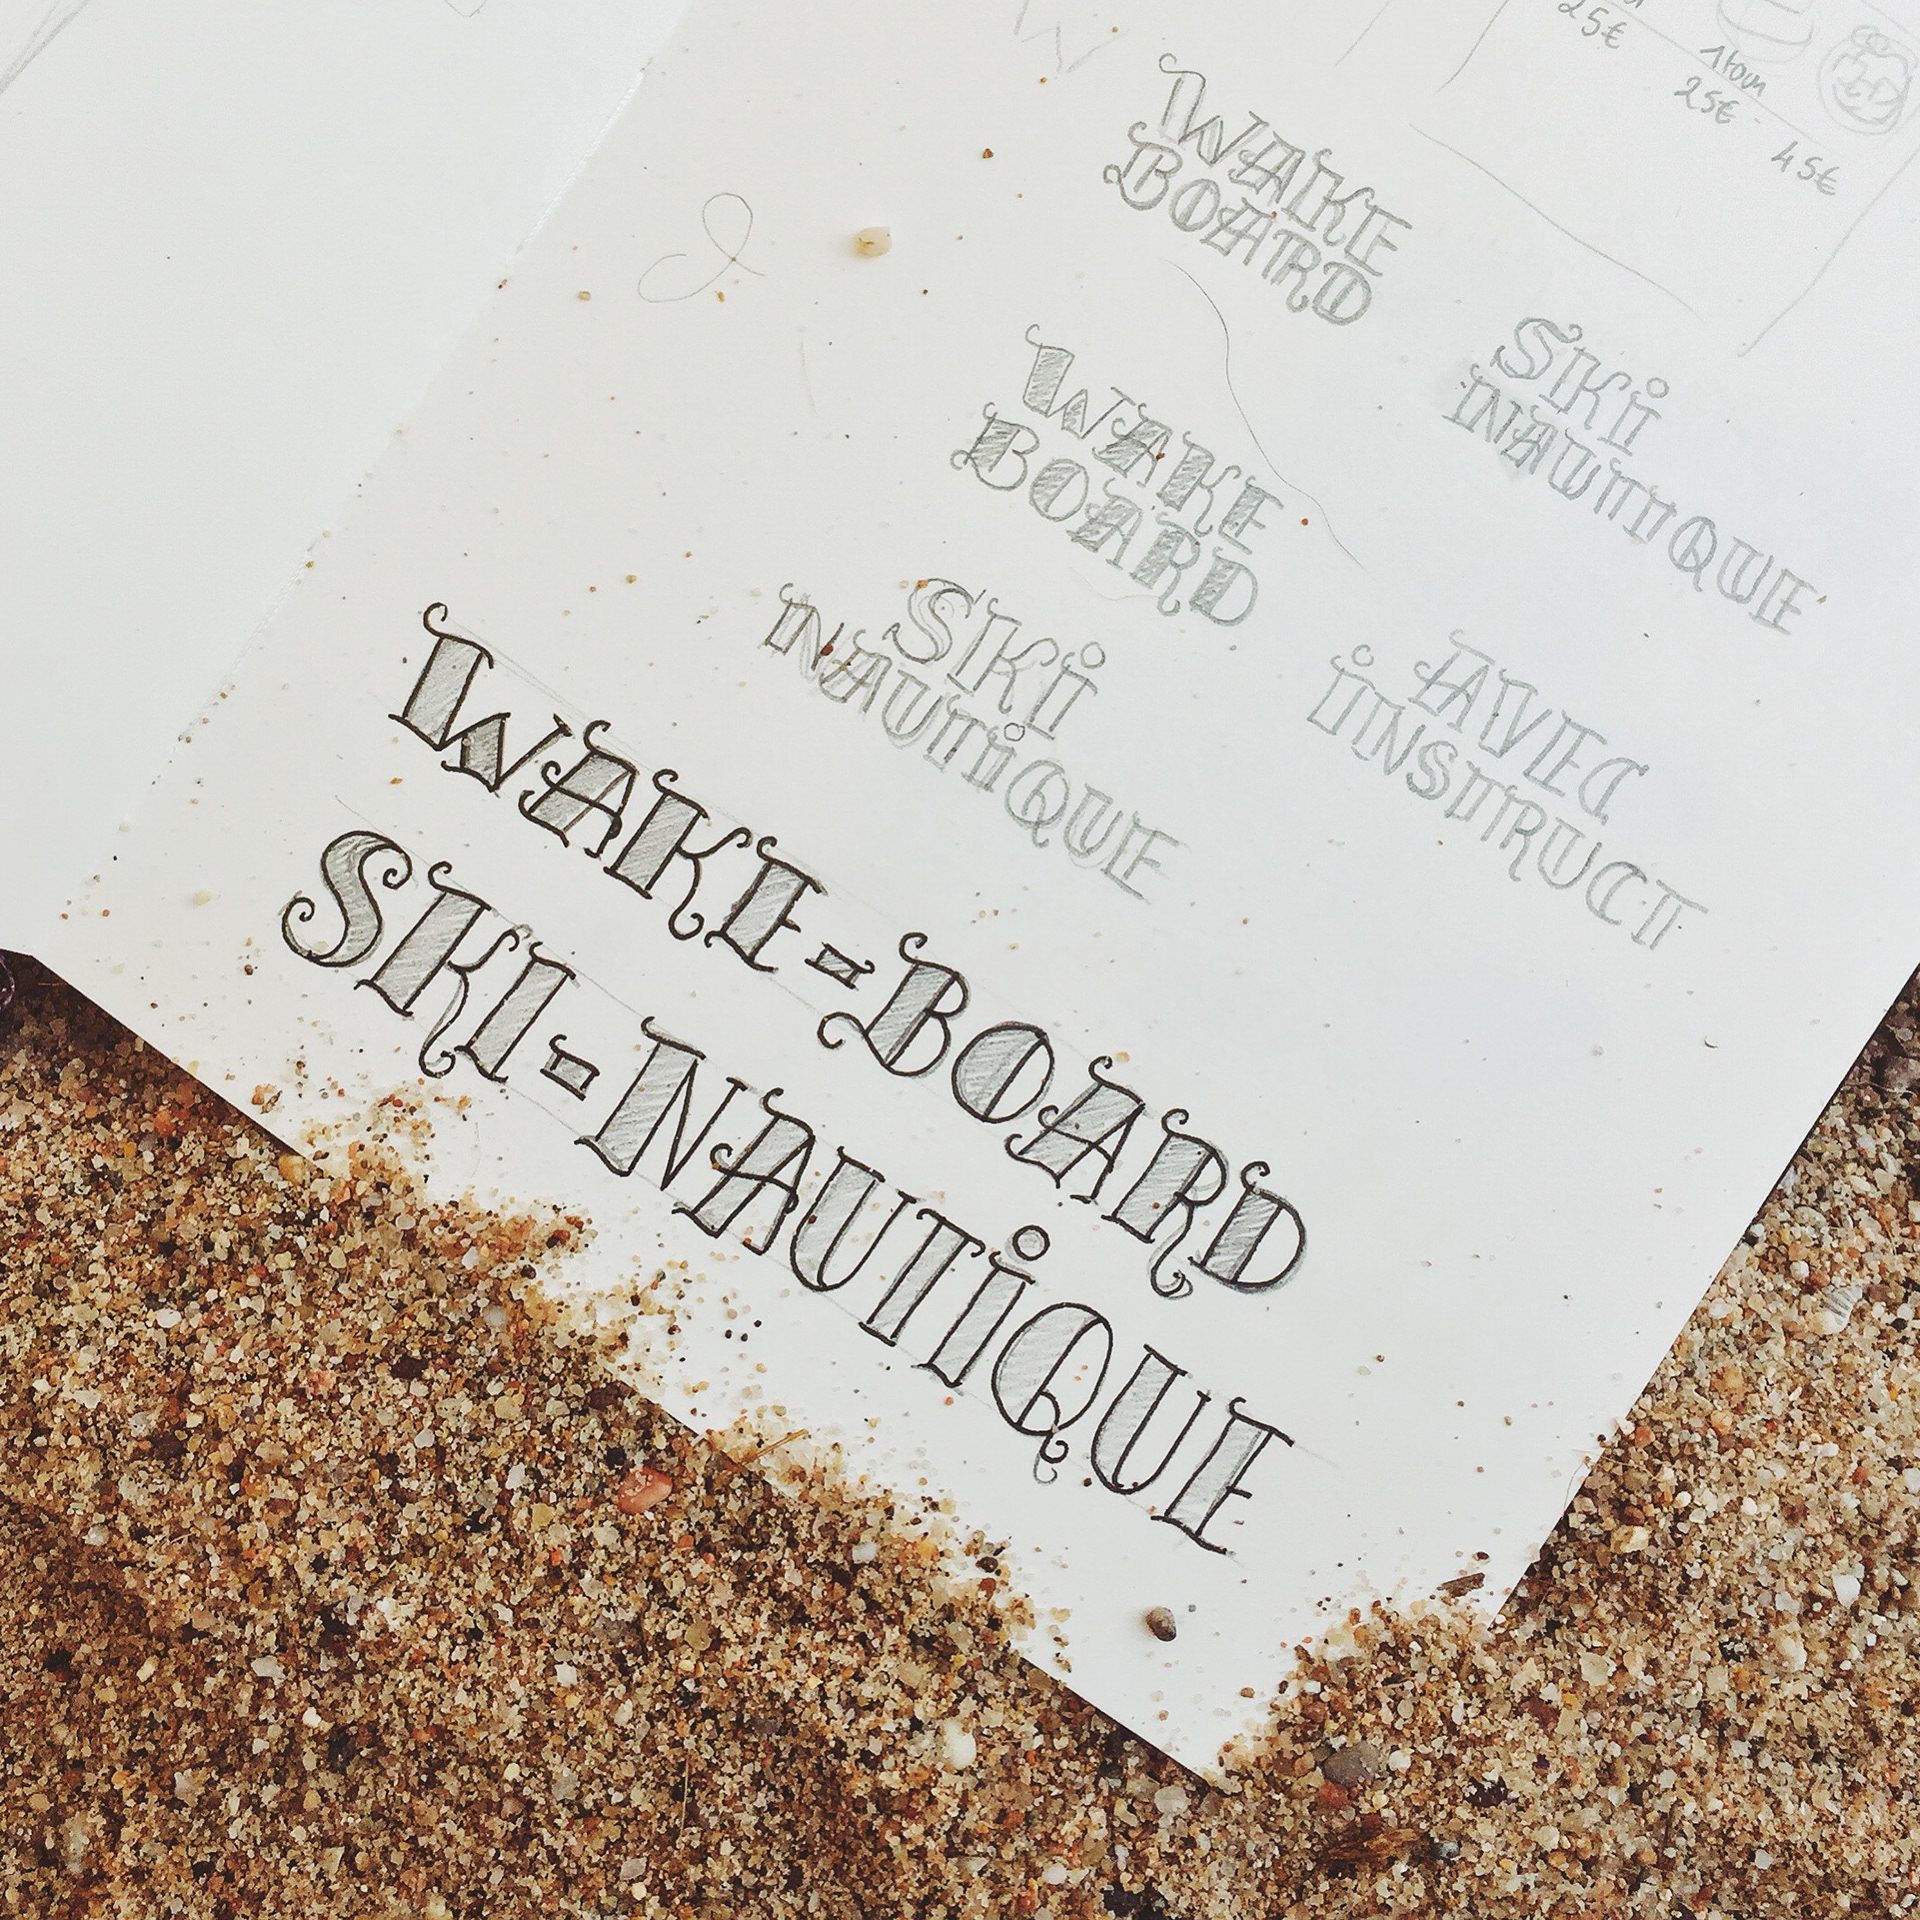 25€
1 tour
25€
45€
WAKE
BOARD
SKi
NAUTIQUE
WAKE
BOARD
SKi
NAUTiQUE
AVEC
iNSTRUCT
WAKE-BOARD
SKI-NAUTiQUE